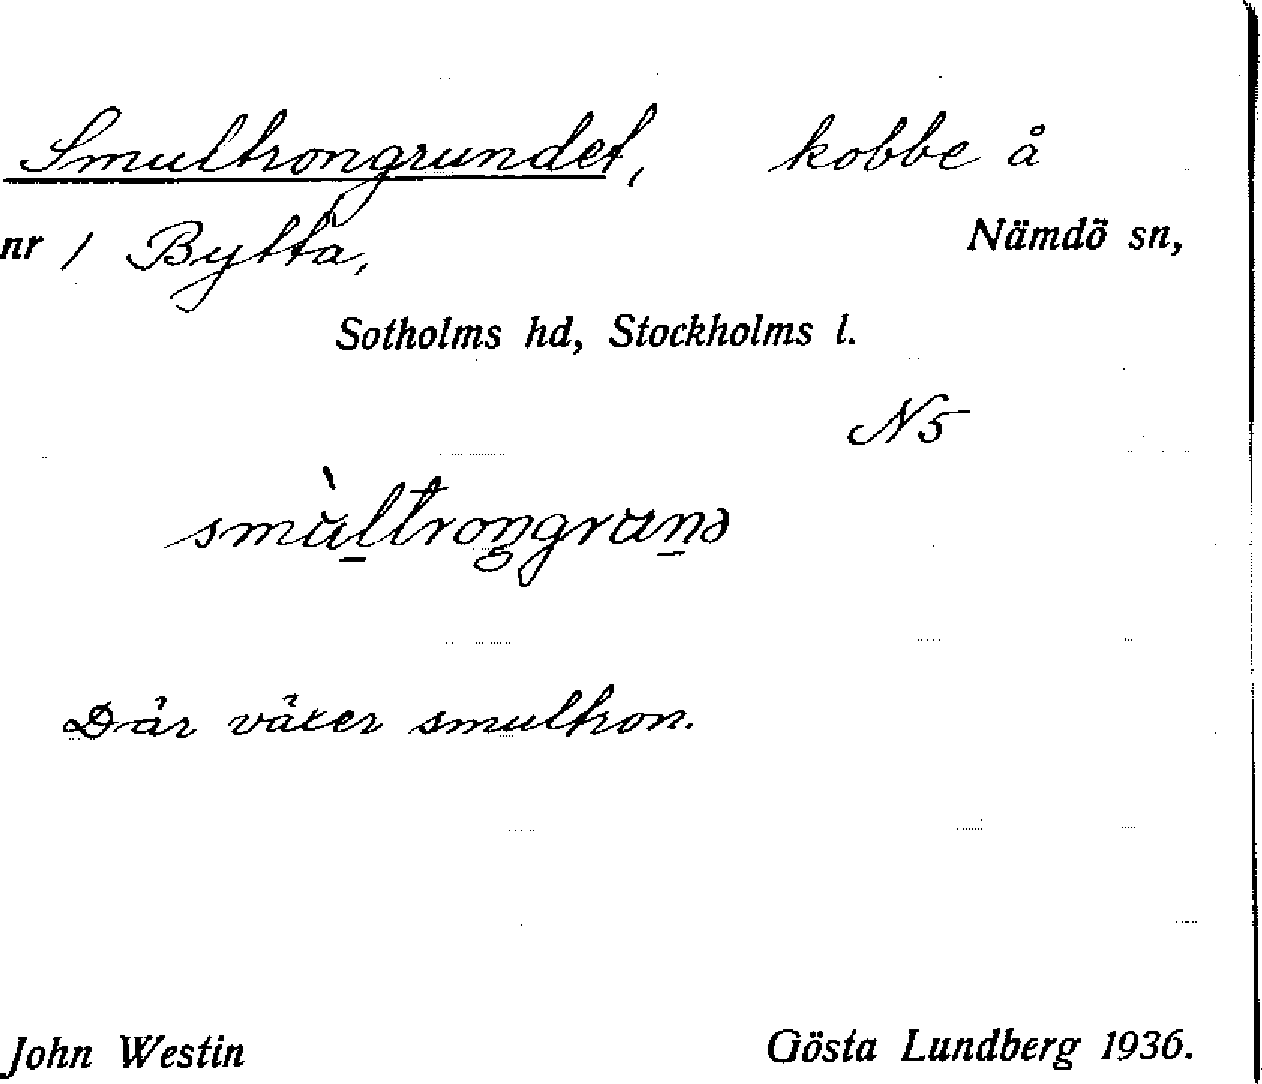 Smultrongrundet, kobbe å
nr 1 Bytta, Nämdö sn,
Sotholms hd, Stockholms l.
N5
smu̇̀ltrongrund
Där växer smultron.
John Westin Gösta Lundberg 1936.